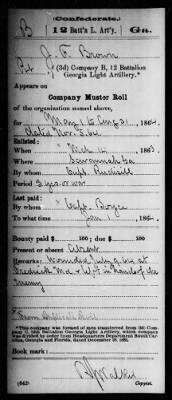 (Confederate.)
B 12 Batt'n L. Art'y. Ga.
J. F. Brown
Pvt, (3d) Company B, 12 Battalion
Georgia Light Artillery.*
Appears on
Company Muster Roll
of the organization named above,
for May 1 to Aug 31, 1864.
dated Nov. 5, 64
Enlisted:
When Mch 14, 1863.
Where Savannah Ga
By whom Capt.
Period 3 years or war
Last paid:
By whom Capt. Boyce
To what time Jan 1, 1864.
Bounty paid $ 100; due $ 100
Present or absent Absent
Remarks: Wounded July 9, 64 at
Frederick Md. & left in hands of the
enemy
From duplicate Roll
*This company was formed of men transferred from (2d) Company C, 12th Battalion Georgia Light Artillery, which company was divided by order from Headquarters Department South Carolina, Georgia and Florida, dated December 10, 1862.
Book mark:
(642) Copyist.